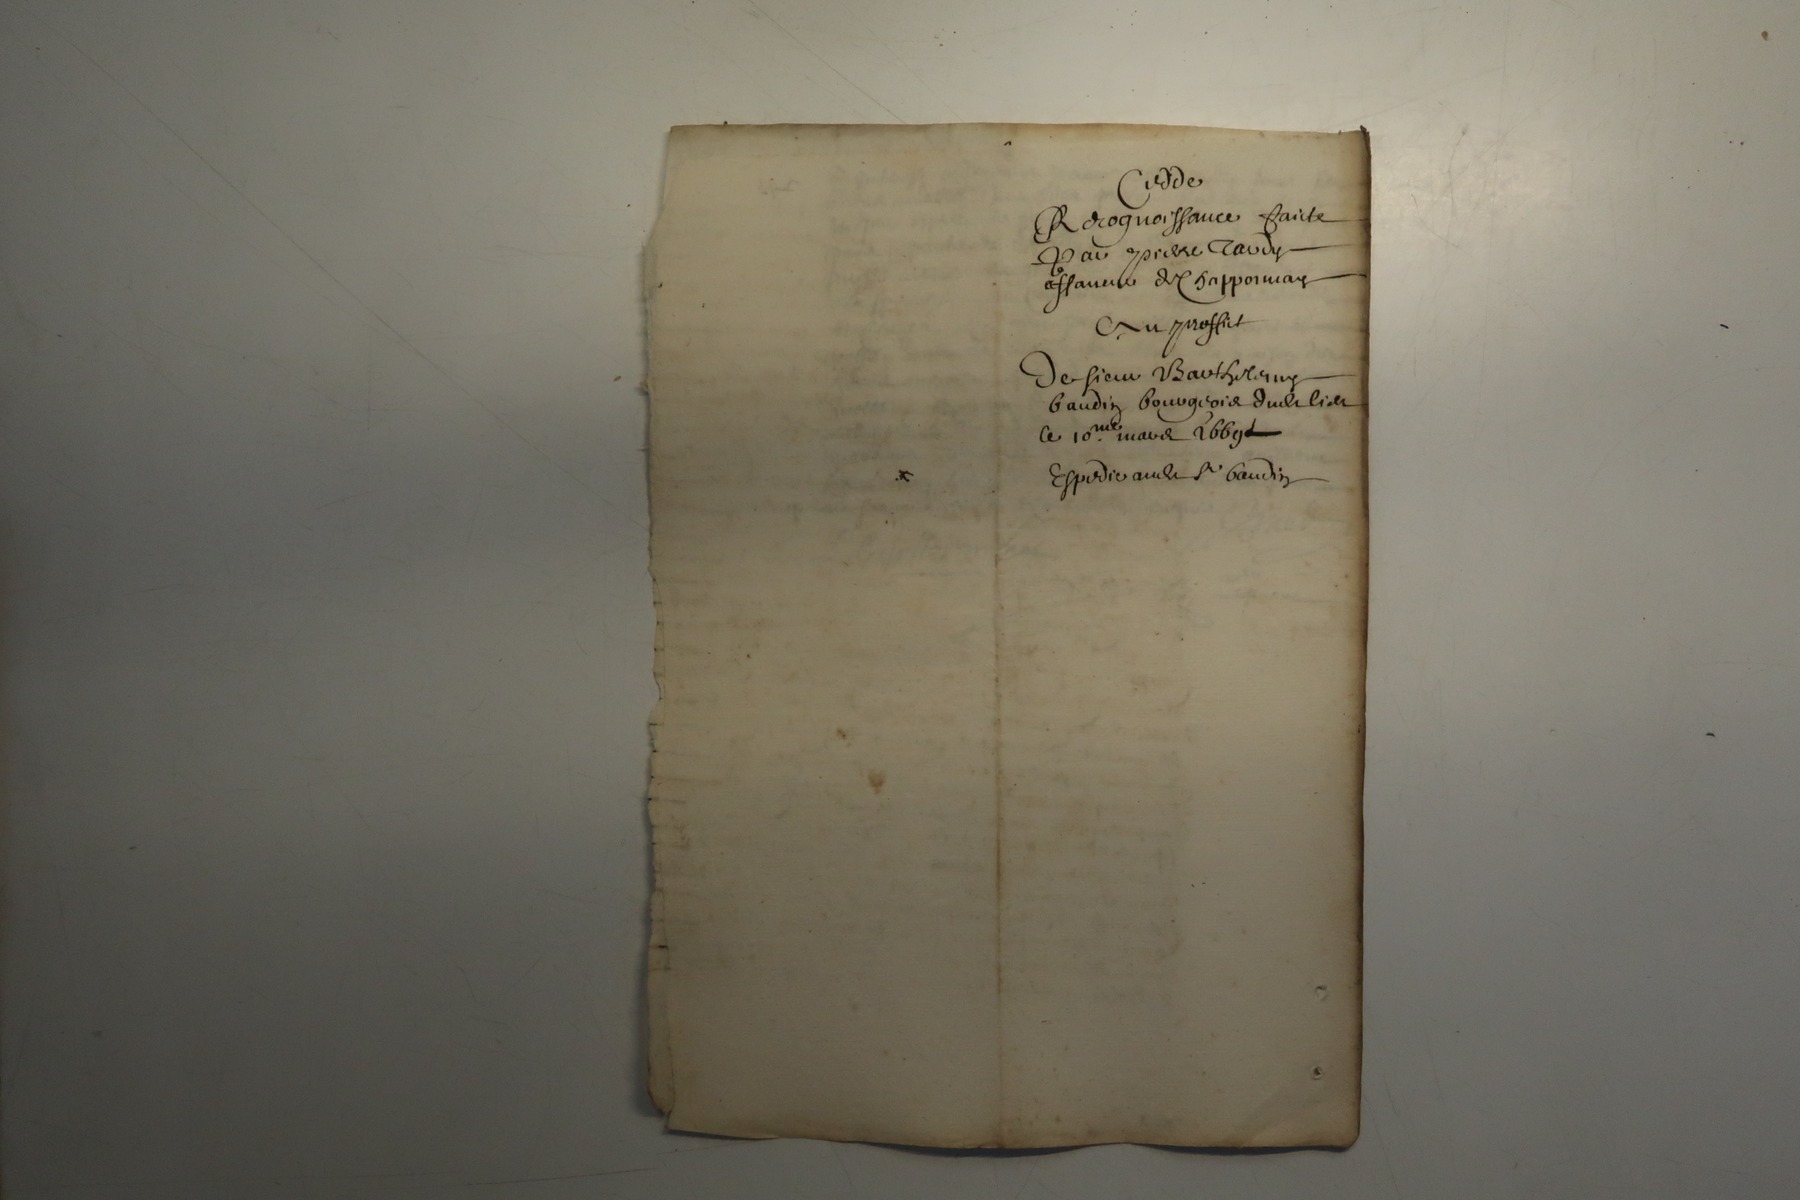 Cedde
Recognoissance faicte
Par pierre Tardy
affaneur de Chapponnay
Au proffit
De sieur Barthelemy
baudin bourgeois dudt lieu
le 10.me mars 1669
Expedie audt Sr baudin